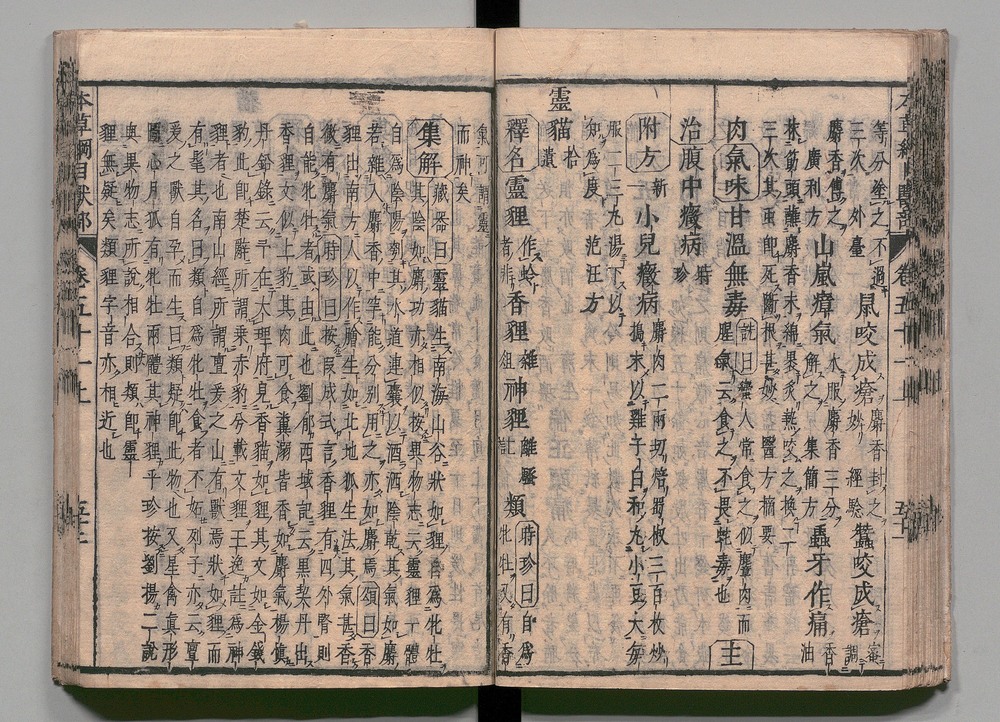 等分塗之不過三次外臺 鼠咬成瘡 麝香封之妙 經驗 蠶咬成瘡 蜜調
麝香傅之廣利方 山嵐瘴氣 水服麝香三分解之 集簡方 蟲牙作痛 香油
抹筯頭蘸麝香末綿裹炙熱咬之換二
三次其蟲即死斷根甚妙醫方摘要
肉 氣味 甘溫無毒 詵曰蠻人常食之似麞肉而腥氣云食之不畏蛇毒也 主
治 腹中癥病 時珍
附方 新一 小兒癥病 麝肉二兩切焙蜀椒三百枚炒搗末以雞子白和丸小豆大每
服二三丸湯下以
知為度 范汪方
靈貓 拾遺
釋名 靈狸 作蛉者非 香狸 雜俎 神狸 離騷註 類 時珍曰自為牝牡又有香
氣可謂靈
而神矣
集解 藏器曰靈貓生南海山谷狀如狸自為牝牡
其陰如麝功亦相似按異物志云靈狸一體
自為陰陽刳其水道連囊以酒洒陰乾其氣如麝
若雜入麝香中罕能分別用之亦如麝焉頌曰香
狸出南方人以作膾生如北地狐生法其氣甚香
微有麝氣時珍曰按段成式言香狸有四外腎則
自能牝牡者或由此也劉郁西域記云黑契丹出
香狸文似土豹其肉可食糞溺皆香如麝氣楊慎
丹鉛錄云予在大理府見香貓如狸其文如金錢
豹此即楚辭所謂乘赤豹兮載文狸王逸註為神
狸者也南山經所謂亶爰之山有獸焉狀如狸而
有髦其名曰類自為牝牡食者不妬列子亦云亶
爰之獸自孕而生曰類疑即此物也又星禽真形
圖心月狐有牝牡兩體其神狸乎珍按劉楊二說
與異物志所說相合則類即靈
狸無疑矣類狸字音亦相近也
本草綱目獸部 卷五十一上